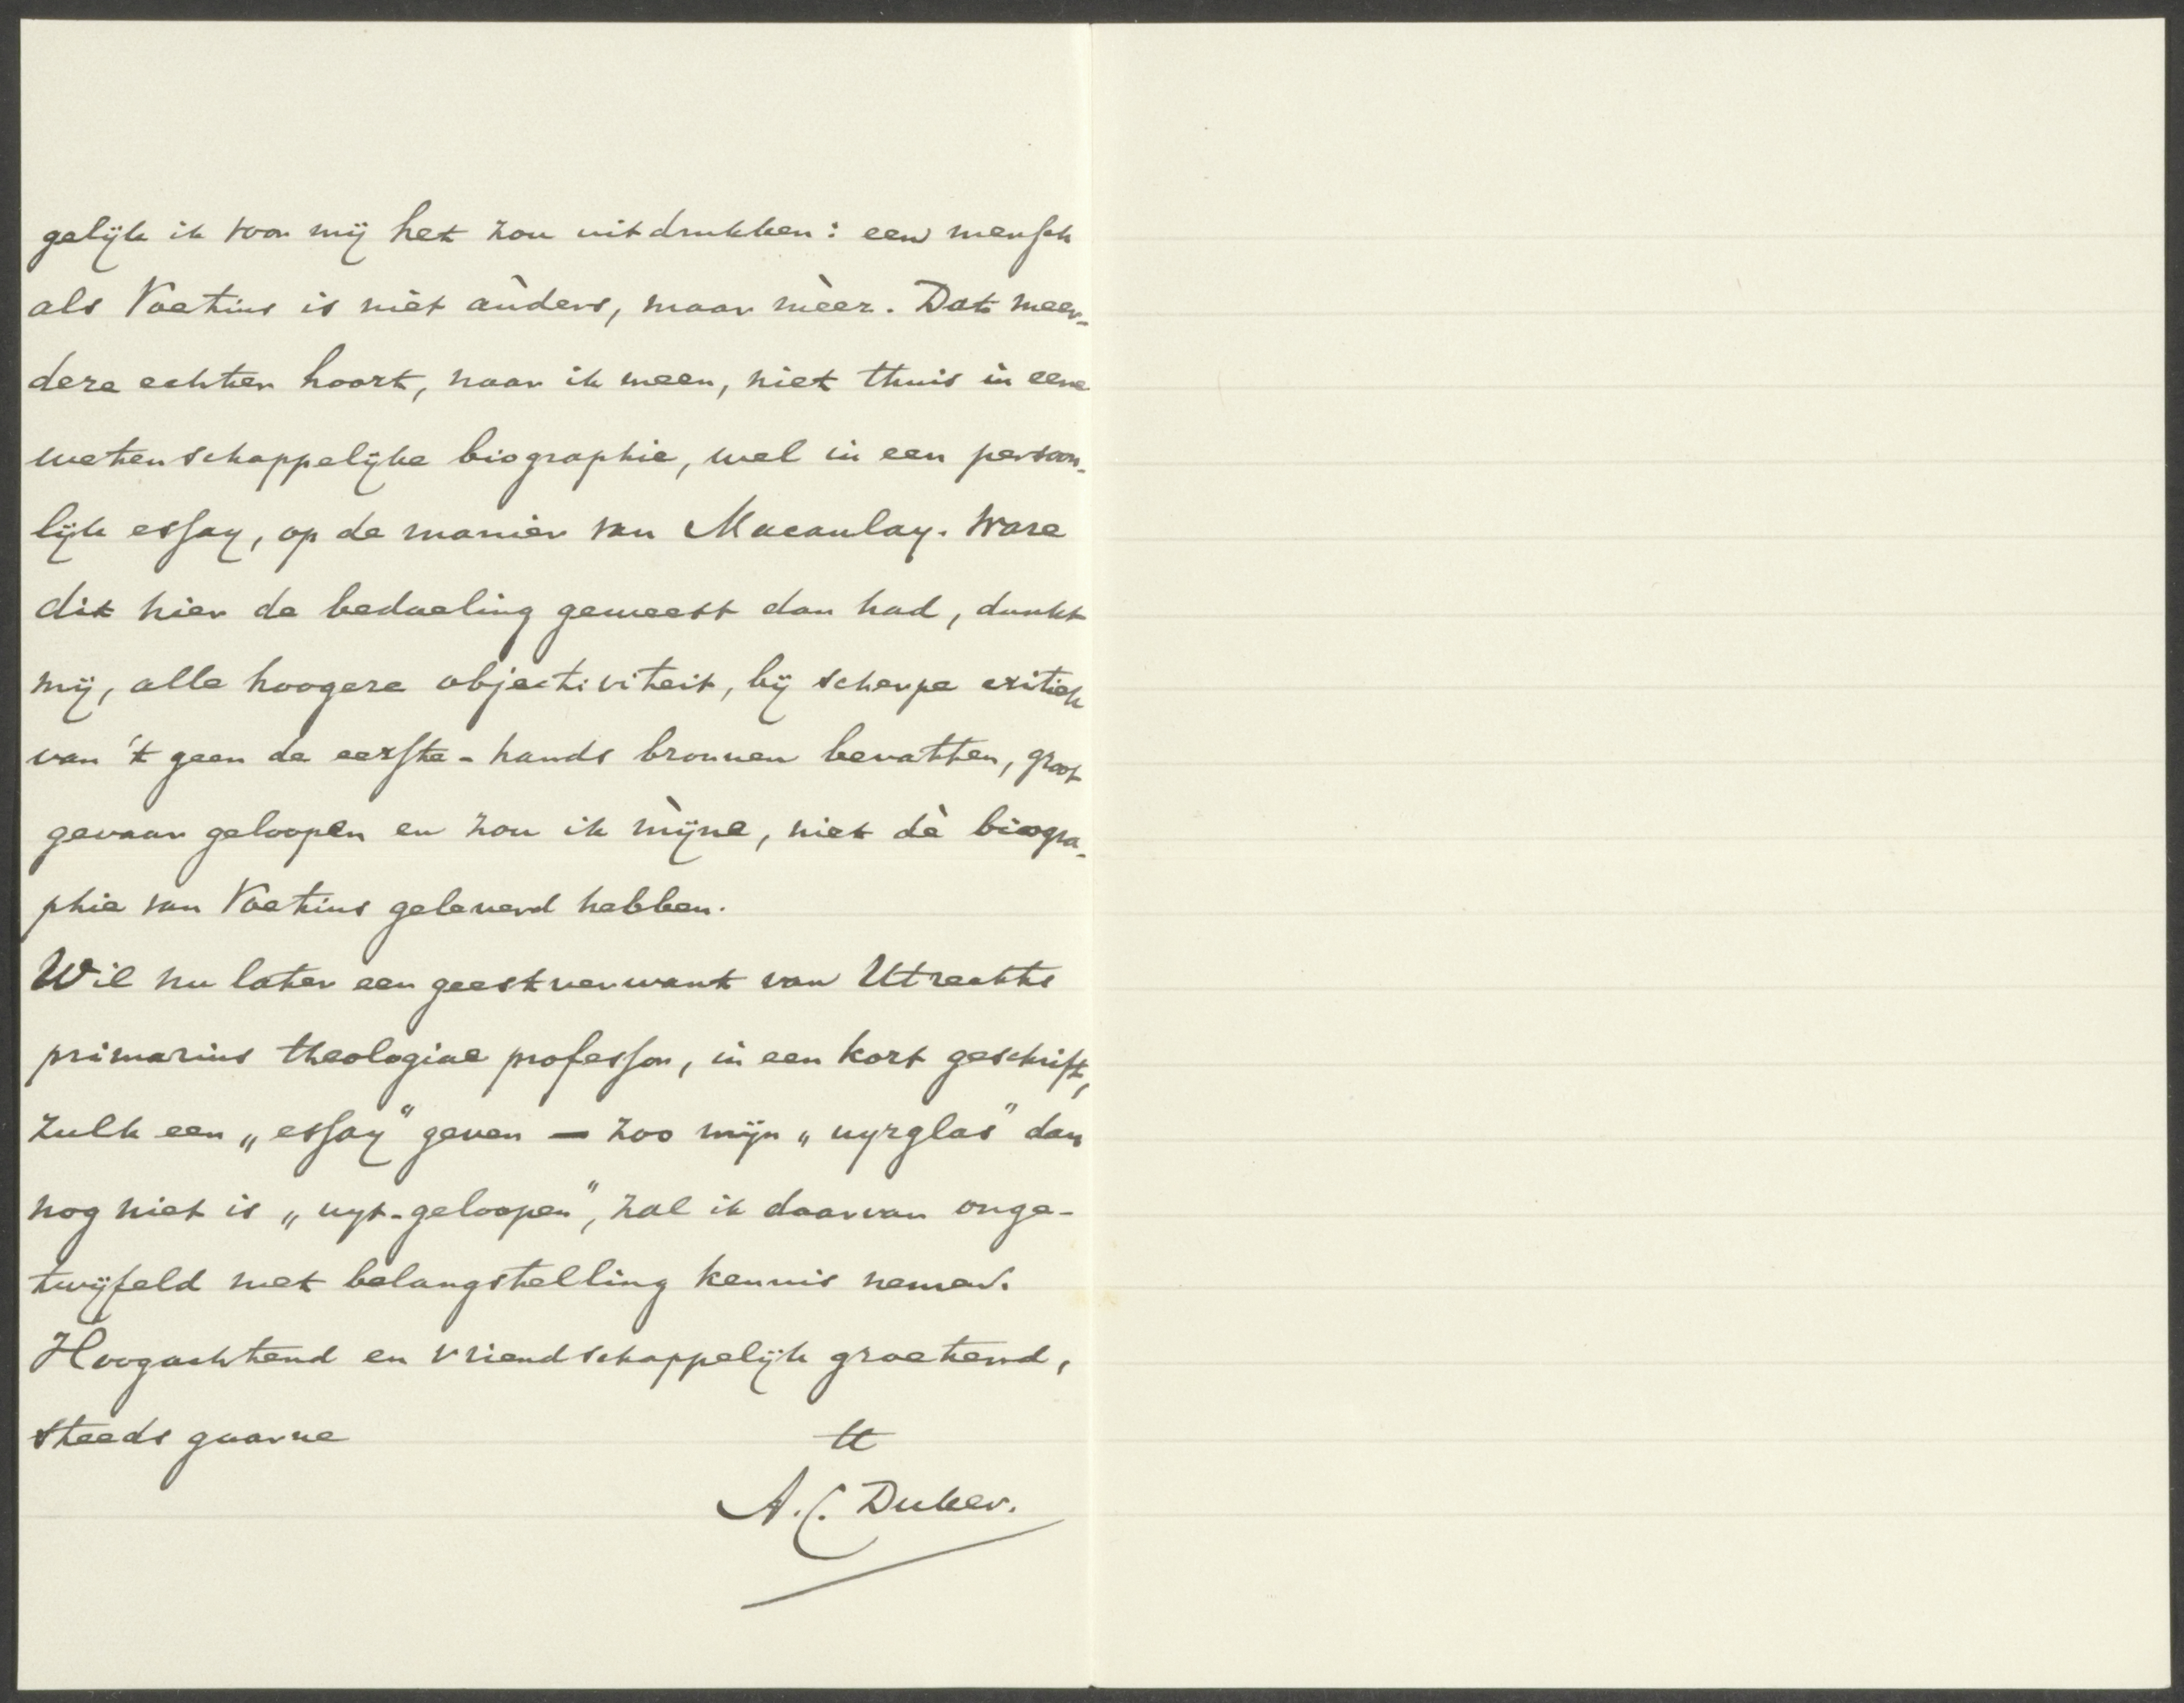 gelijk ik voor mij het zou uitdrukken: een mensch
als Voetius is niet ànders, maar mèer. Dat meer-
dere echter hoort, naar ik meen, niet thuis in eene
wetenschappelijke biographie, wel in een persoon-
lijk essay, op de manier van Macaulay. Ware
dit hier de bedoeling geweest dan had, dunkt
mij, alle hoogere objectiviteit, bij scherpe critiek
van 't geen de eerste-hands bronnen bevatten, groot
gevaar geloopen en zou ik mìjne, niet dè biogra-
phie van Voetius geleverd hebben.
Wil nu later een geestverwant van Utrechts
primarius theologiae professor, in een kort geschrift,
zulk een „essay" geven — zoo mijn „uyrglas" dan
nog niet is „uyt-geloopen", zal ik daarvan onge-
twijfeld met belangstelling kennis nemen.
Hoogachtend en vriendschappelijk groetend,
steeds gaarne tt
A.C. Duker.